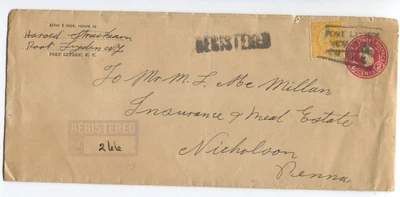 After 5 days, return to
Harold Strackearn
Port Leyden N.Y.
PORT LEYDEN, N. Y.
REGISTERED
PORT LEYDEN
To Mr M. L. McMillan
Insurance & Meal Estate
Nicholson
Penna.
REGISTERED
266